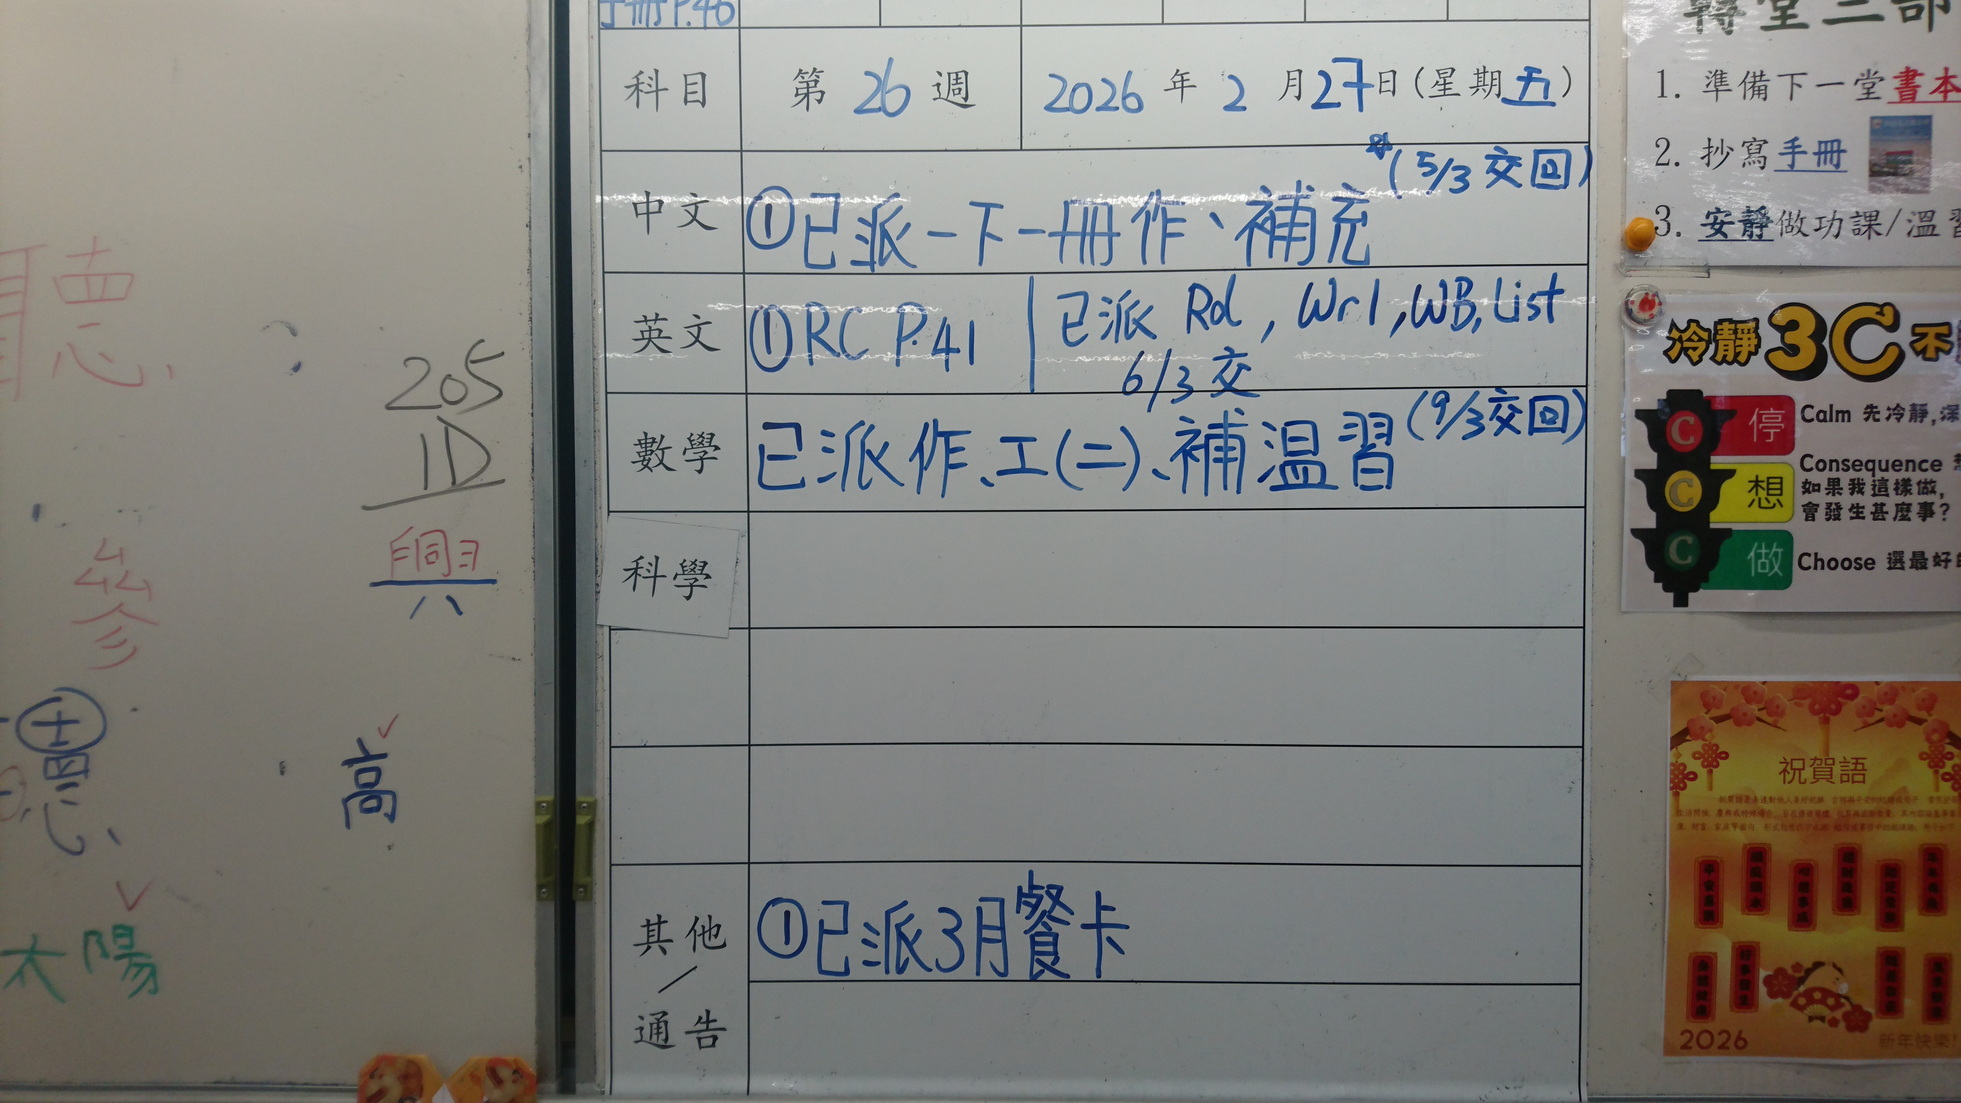 手冊P.46
科目 第 26 週 2026 年 2 月 27 日(星期五)
中文 ①已派一下一冊作、補充 *(5/3 交回)
英文 ①RC P.41 已派 Rd, Wr1, WB, List
6/3 交
數學 已派作、工(二)、補温習 (9/3交回)
科學
其他/通告 ①已派3月餐卡
聽
205
1D
興
八
高
太陽
轉堂三部
1. 準備下一堂書本
2. 抄寫手冊
3. 安靜做功課/溫習
冷靜3C不
C 停 Calm 先冷靜,深
C 想 Consequence 想
如果我這樣做,
會發生甚麼事?
C 做 Choose 選最好的
祝賀語
2026 新年快樂!